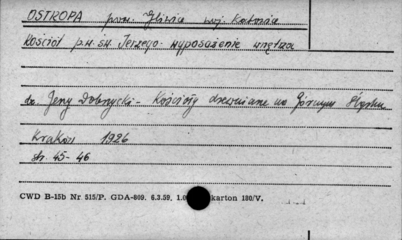 OSTROPA pow. Gliwice woj. Katowice
Kościół p.w. św. Jerzego - wyposażenie wnętrza
dr. Jerzy Dobrzycki - Kościoły drewniane na Górnym Śląsku
Kraków 1926
str. 45-46
CWD B-15b Nr 515/P. GDA-809. 6.3.59, karton 180/V.